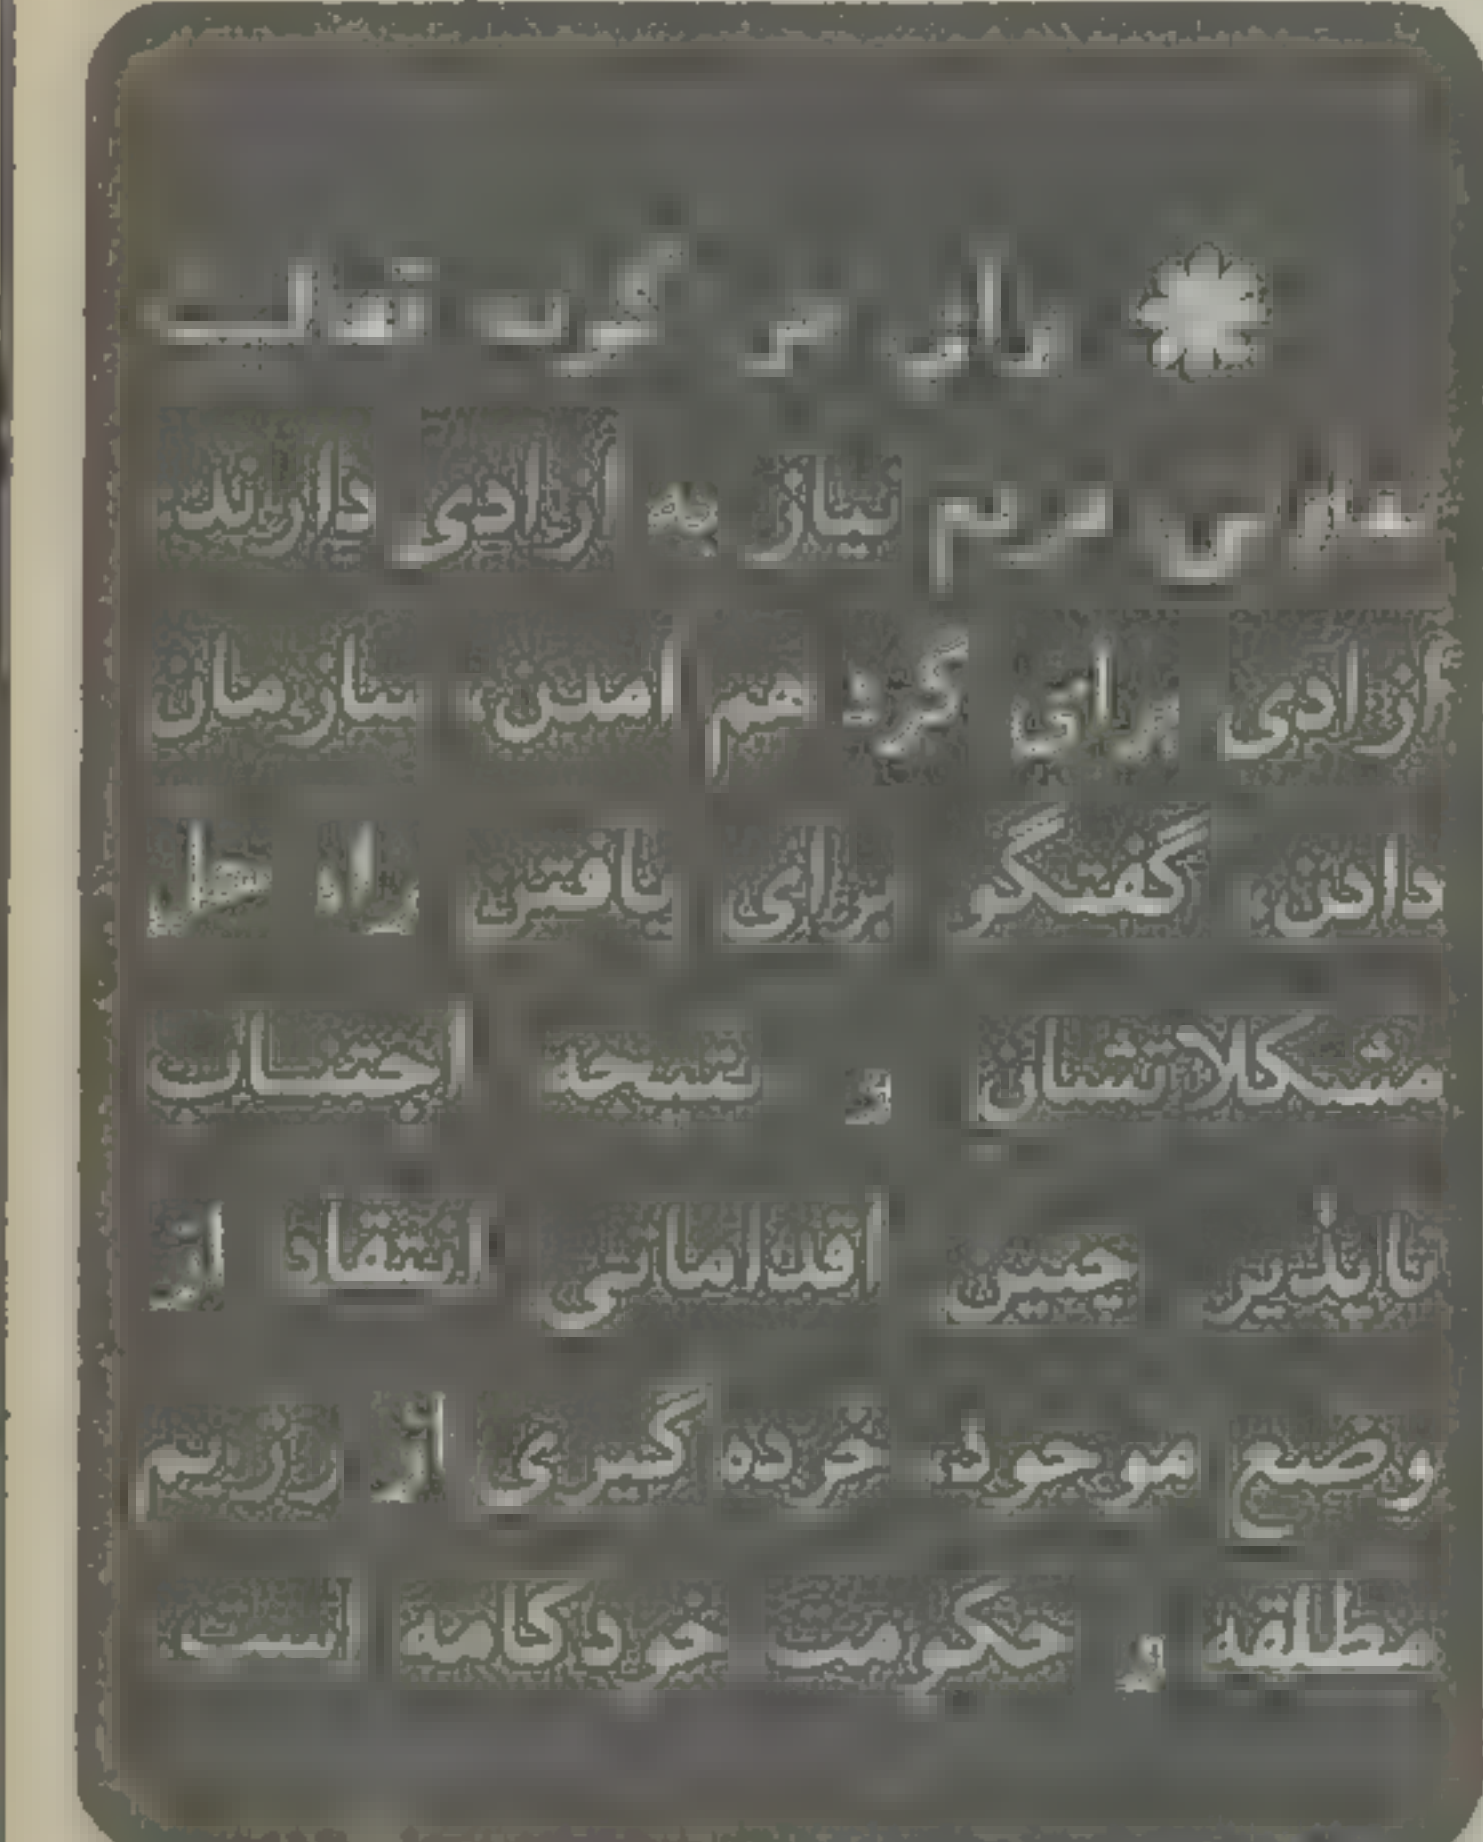 برای
مردم نیاز به آزادی دارند.
آزادی برای گرد هم آمدن، سازمان
دادن گفتگو برای یافتن راه حل
مشکلاتشان و نتیجه اجتناب
ناپذیر چنین اقداماتی انتقاد از
وضع موجود، خرده گیری از رژیم
مطلقه و حکومت خودکامه است